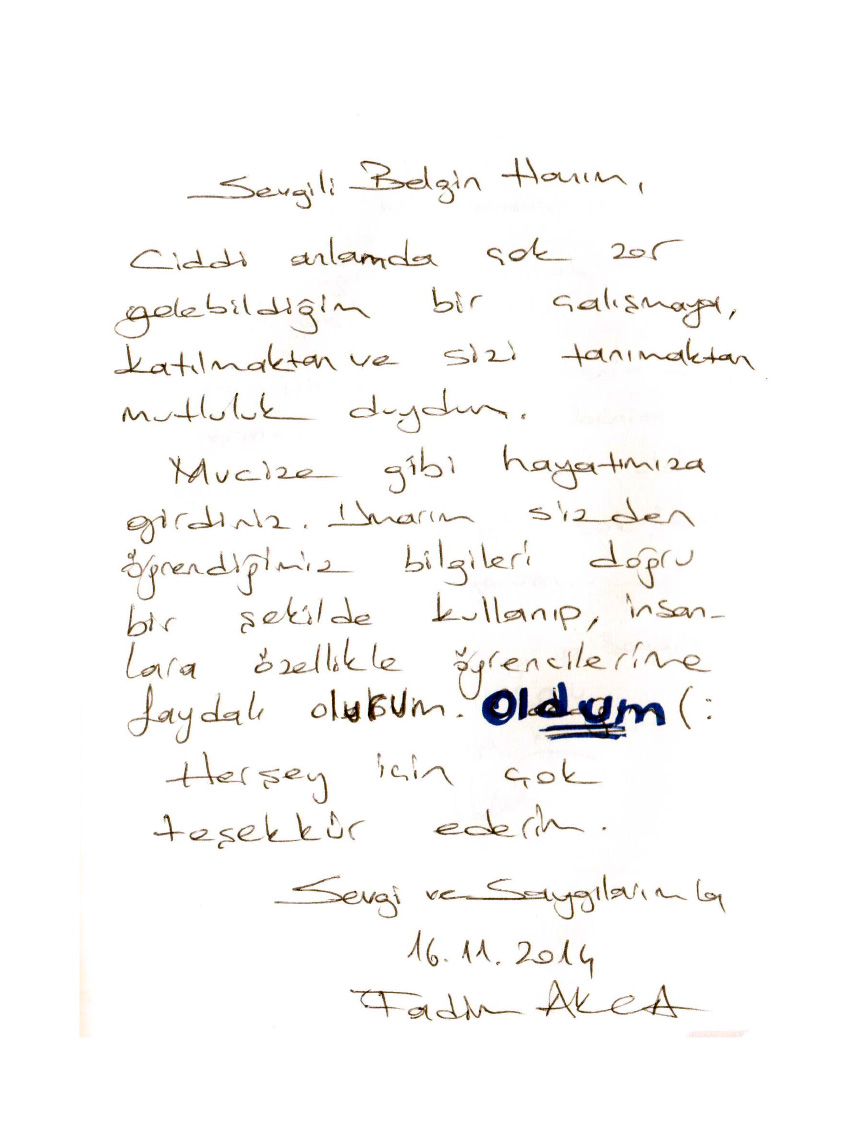 Sevgili Belgin Hanım,
Ciddi anlamda çok zor
gelebildiğim bir çalışmaya,
katılmaktan ve sizi tanımaktan
mutluluk duydum.
Mucize gibi hayatımıza
girdiniz. Umarım sizden
öğrendiğimiz bilgileri doğru
bir şekilde kullanıp, insan-
lara özellikle öğrencilerime
faydalı olurum. Oldum (:
Herşey için çok
teşekkür ederim.
Sevgi ve Saygılarımla
16.11.2014
Fadim AKCA